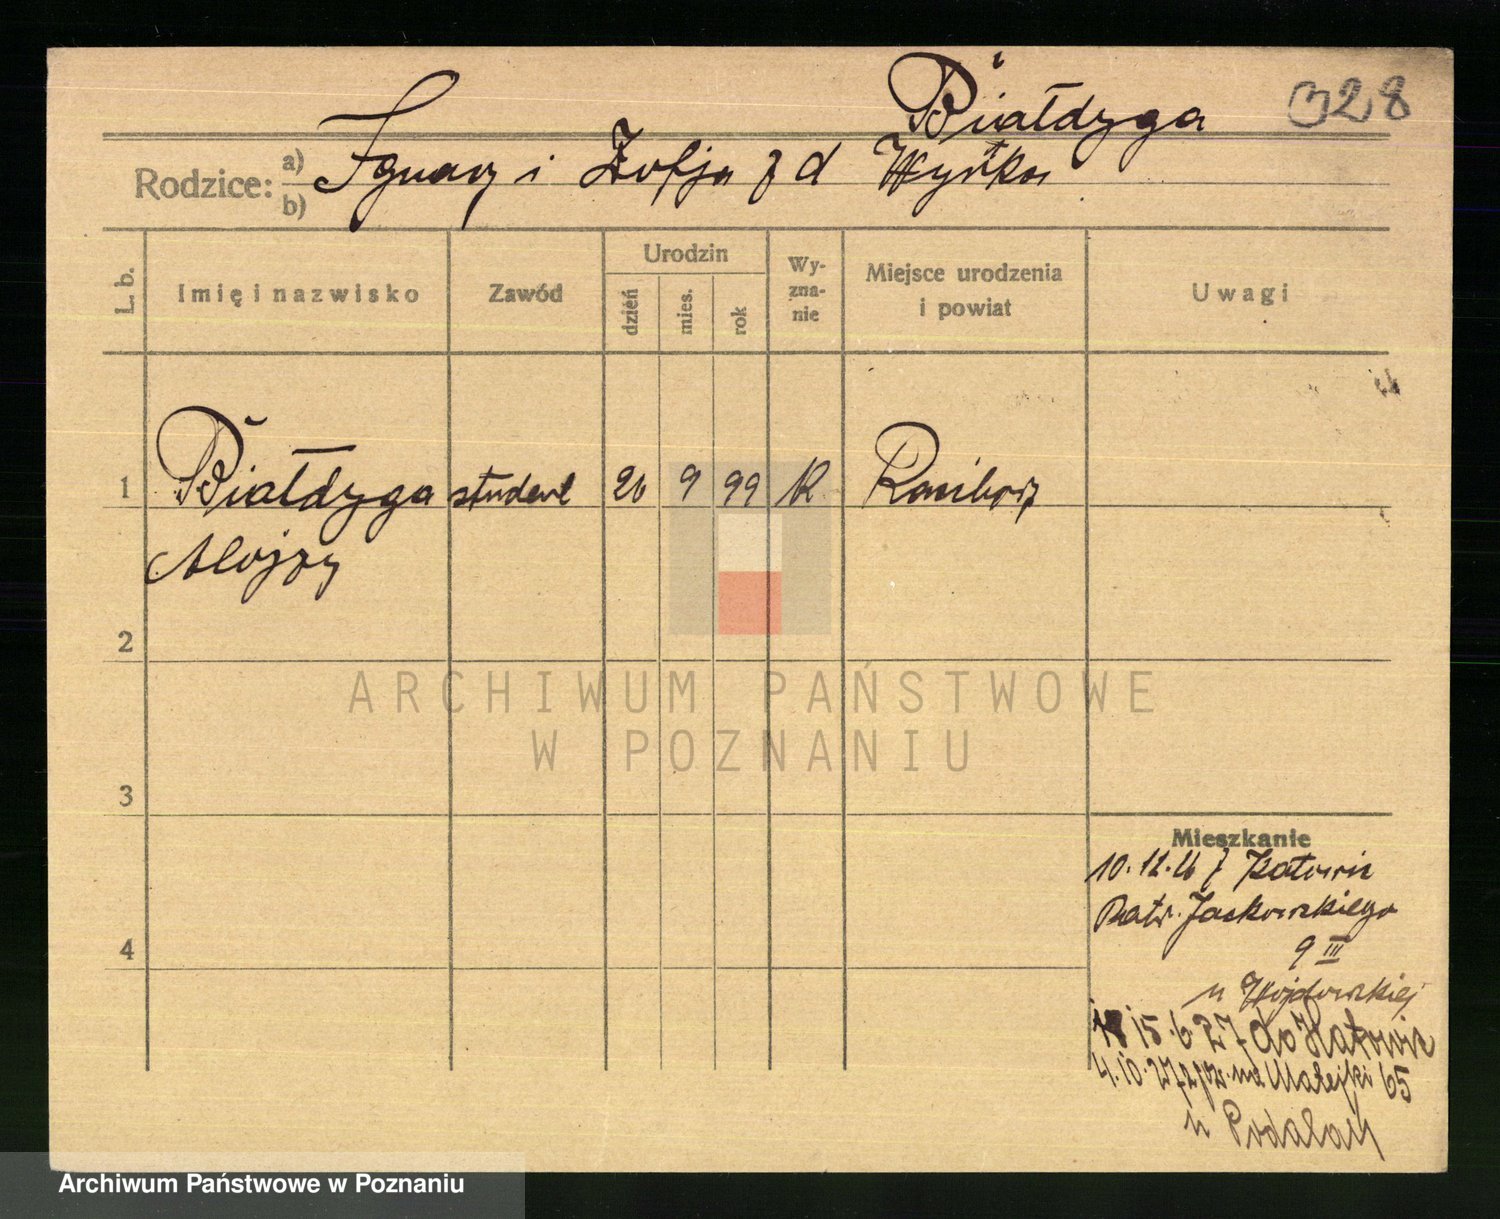 Białdyga 328
Rodzice: a) Ignacy i Zofja z d
b)
L. b.
Imię i nazwisko
Zawód
Urodzin
dzień
mies.
rok
Wy-
zna-
nie
Miejsce urodzenia
i powiat
Uwagi
1 Białdyga student 26 9 99 K Racibórz
Alojzy
2
3
4
Mieszkanie
10.12.26 z Katowic
Jackowskiego
9 III
u Wojdowskiej
15.6.27 do Katowic
4.10.27 na Matejki 65
u
ARCHIWUM PAŃSTWOWE
W POZNANIU
Archiwum Państwowe w Poznaniu